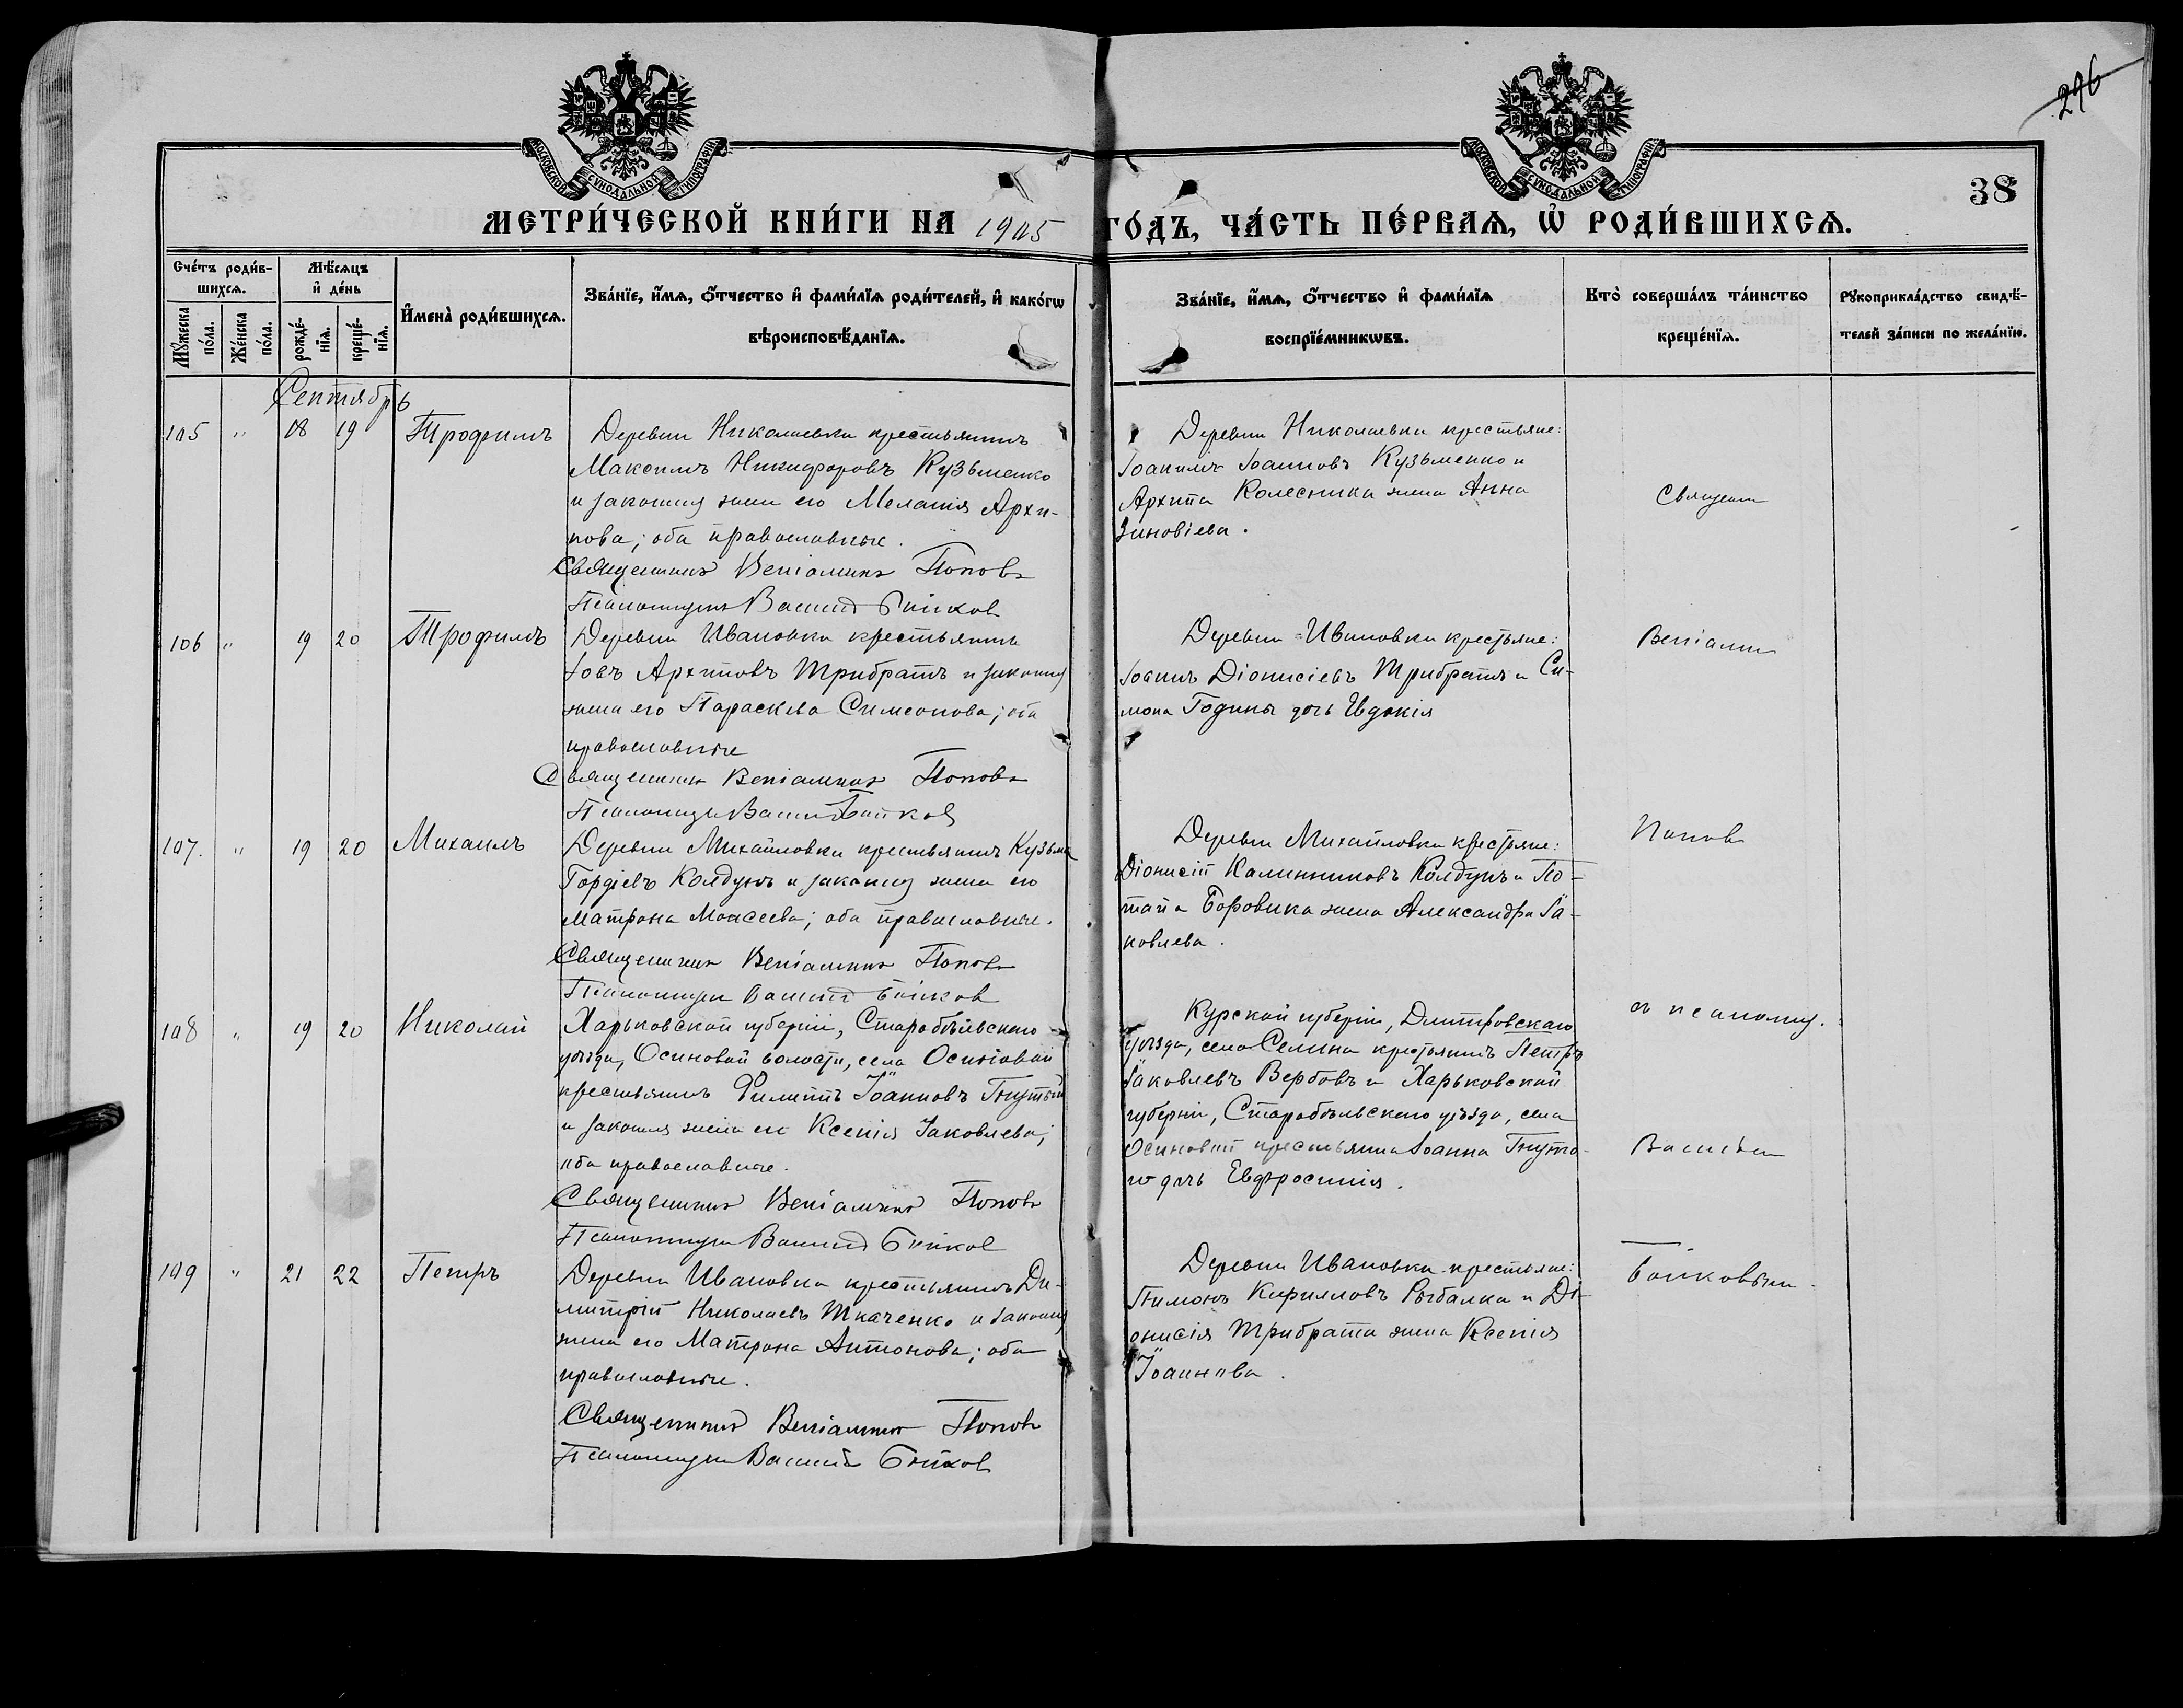 296
38
МОСКОВСКОЙ СѴНОДАЛЬНОЙ ТИПОГРАФІИ
МОСКОВСКОЙ СѴНОДАЛЬНОЙ ТИПОГРАФІИ
МЕТРИ́ЧЕСКОЙ КНИ́ГИ НА 1905 ГО́ДЪ, ЧА́СТЬ ПЕ́РВАѦ, Ѡ҆ РОДИ́ВШИХСѦ.
Сче́тъ роди́в-
шихсѧ.
Мꙋ́жеска по́ла.
Же́нска по́ла.
Мѣ́сѧцъ
и҆ де́нь
рожде́-
нїѧ.
креще́-
нїѧ.
И҆мена̀ роди́вшихсѧ.
Зва́нїе, и҆́мѧ, ѻ҆́тчество и҆ фами́лїѧ роди́телей, и҆ како́гѡ
вѣроисповѣ́данїѧ.
Зва́нїе, и҆́мѧ, ѻ҆́тчество и҆ фами́лїѧ
воспрїе́мникѡвъ.
Кто̀ соверша́лъ та́инство
креще́нїѧ.
Рꙋкоприкла́дство свидѣ́-
телей за́писи по жела́нїю.
Сентябрь
105 " 18 19 Трофимъ
Деревни Николаевки крестьянинъ
Максимъ Никифоровъ Кузьменко
и законная жена его Мелания Архи-
пова; оба православные.
Священникъ Веніаминъ Поповъ
Псаломщикъ Василій Байков
Деревни Николаевки крестьяне:
Іоакимъ Іоанновъ Кузьменко и
Архипа Колесника жена Анна
Зиновіева.
Священн
106 " 19 20 Трофимъ
Деревни Ивановки крестьянинъ
Іовъ Архиповъ Трибратъ и законная
жена его Параскева Симеонова; оба
православные
Священникъ Веніаминъ Поповъ
Псаломщикъ Василій Байков
Деревни Ивановки крестьяне:
Іоаннъ Діонисіевъ Трибратъ и Си-
мона Годины дочь Евдокія
Веніамин
107. " 19 20 Михаилъ
Деревни Михайловки крестьянинъ Кузьма
Гордіевъ Колдунъ и законная жена его
Матрона Моисеева; оба православные.
Священникъ Веніаминъ Поповъ
Псаломщикъ Василій Байков
Деревни Михайловки крестьяне:
Діонисій Калинниковъ Колдунъ и По-
тапа Боровика жена Александра Іа-
ковлева.
Попов
108 " 19 20 Николай
Харьковской губерніи, Старобѣльскаго
уѣзда, Осиновой волости, села Осиновой
крестьянинъ Филиппъ Іоанновъ Гнутый
и законная жена его Ксенія Іаковлева;
оба православные.
Священникъ Веніаминъ Поповъ
Псаломщикъ Василій Байков
Курской губерніи, Дмитровскаго
уѣзда, села Селина крестьянинъ Петръ
Іаковлевъ Вербовъ и Харьковской
губерніи, Старобѣльскаго уѣзда, села
Осиновой крестьянина Іоанна Гнута-
го дочь Евфросинія.
съ псаломщ.
Василіем
109 " 21 22 Петръ
Деревни Ивановки крестьянинъ Ди-
митрій Николаевъ Ткаченко и законная
жена его Матрона Антонова; оба
православные.
Священникъ Веніаминъ Поповъ
Псаломщикъ Василій Байков
Деревни Ивановки крестьяне:
Пимонъ Кирилловъ Рыбалка и Ді-
онисія Трибрата жена Ксенія
Іоаннова.
Байковым.